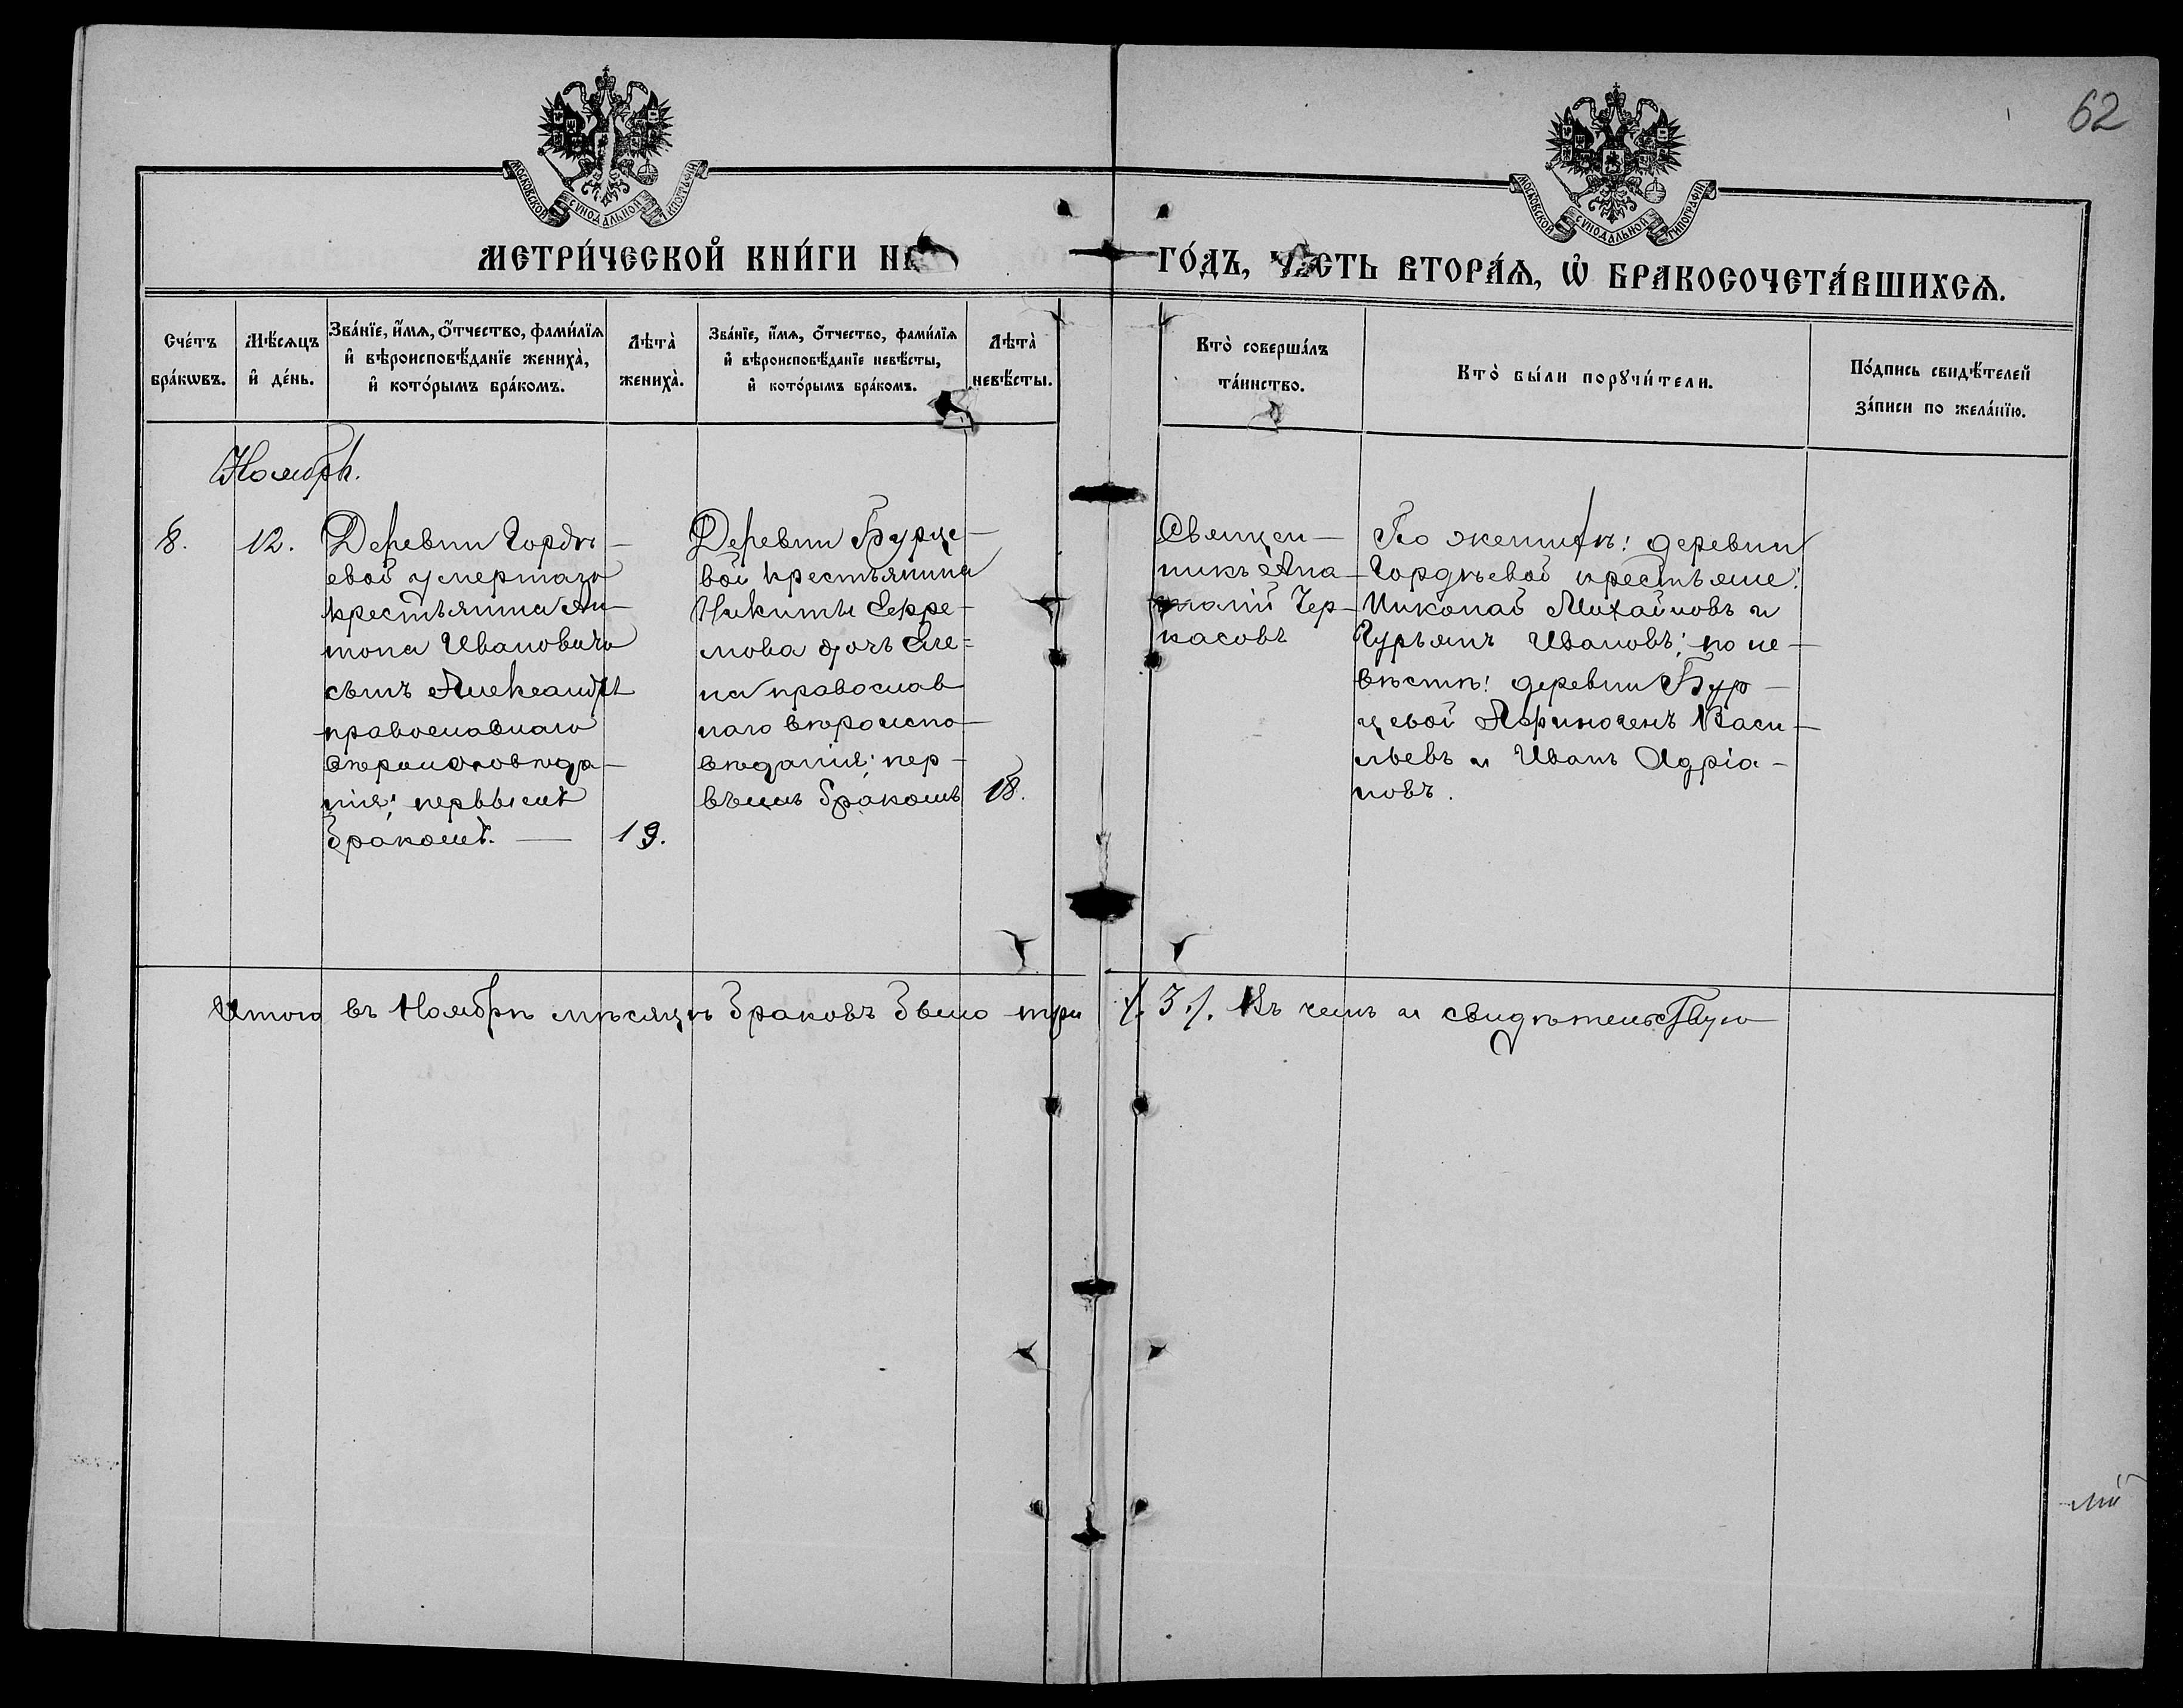 62
МОСКОВСКОЙ СѴНОДАЛЬНОЙ ТИПОГРАФІИ
МОСКОВСКОЙ СѴНОДАЛЬНОЙ ТИПОГРАФІИ
МЕТРИ́ЧЕСКОЙ КНИ́ГИ НА
ГО́ДЪ, ЧА́СТЬ ВТОРА́Ѧ, Ѽ БРАКОСОЧЕТА́ВШИХСѦ.
Сче́тъ
бра́кѡвъ.
Мѣ́сѧцъ
и҆ де́нь.
Зва́нїе, и҆́мѧ, ѻ҆́тчество, фами́лїѧ
и҆ вѣроисповѣ́данїе жениха̀,
и҆ кото́рымъ бра́комъ.
Лѣта̀
жениха̀.
Зва́нїе, и҆́мѧ, ѻ҆́тчество, фами́лїѧ
и҆ вѣроисповѣ́данїе невѣ́сты,
и҆ кото́рымъ бра́комъ.
Лѣта̀
невѣ́сты.
Кто̀ соверша́лъ
та́инство.
Кто̀ бы́ли порꙋчи́тели.
По́дпись свидѣ́телей
за́писи по жела́нїю.
Ноябрь.
8.
12.
Деревни Гордѣ-
евой умершаго
крестьянина Ан-
тона Ивановича
сынъ Александръ
православнаго
вѣроисповѣда-
нія; первымъ
бракомъ. —
19.
Деревни Бурце-
вой крестьянина
Никиты Сефре-
мова дочь Еле-
на православ
наго вѣроиспо-
вѣданія; пер-
вымъ бракомъ
18.
Священ-
никъ Ана-
толій Чер-
касовъ
По женихѣ: деревни
Гордѣевой крестьяне:
Николай Михайловъ и
Гурьянъ Ивановъ; по не-
вѣстѣ: деревни Бур-
цевой Афиногенъ Васи-
льевъ и Иванъ Адріа-
новъ.
Итого въ Ноябрѣ мѣсяцѣ браковъ было три /. 3 ./. Въ чемъ и свидѣтельствую
лій